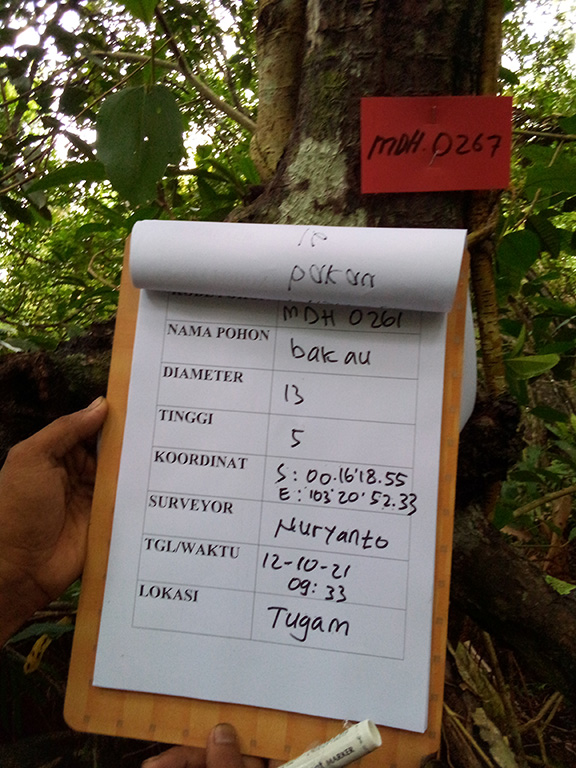 MDH.0267
pakan
MDH 0261
NAMA POHON bakau
DIAMETER 13
TINGGI 5
KOORDINAT S: 00.16'18.55
E: 103°20'52.33
SURVEYOR Nuryanto
TGL/WAKTU 12-10-21
09:33
LOKASI Tugam
MARKER